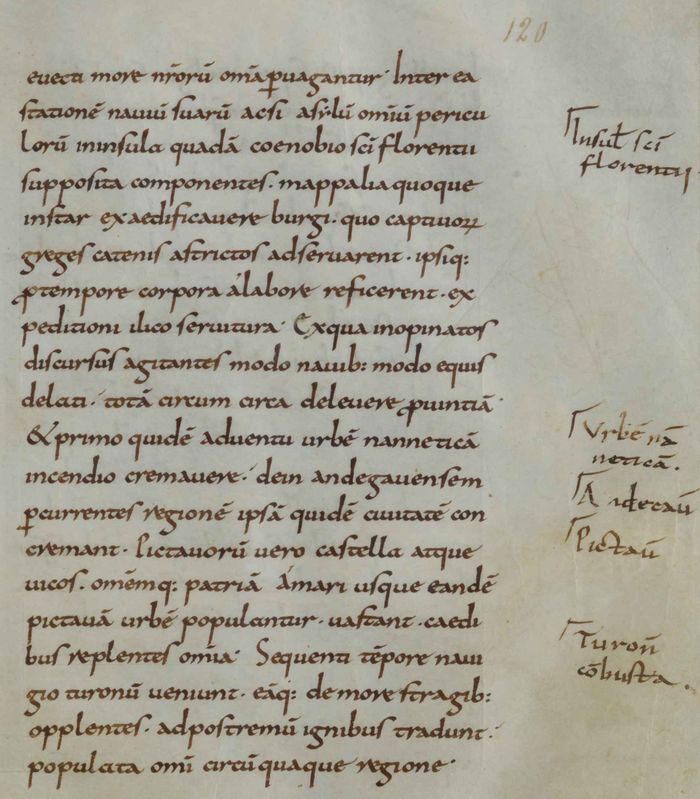 120
evecti more nr̄orū om̄a ꝑvagantur· Inter ea
stationē naviū suarū acsi asylū om̄iū pericu
lorū ininsula quadā coenobio sc̄i florentii
supposita componentes· mappalia quoque
instar exaedificavere burgi· quo captivoꝝ
greges catenis astrictos adservarent· ipsiq:
ꝓtempore corpora álabore reficerent· ex
peditioni ilico servitura· Exqua inopinatos
discursus agitantes modo navib: modo equis
delati· totā circum circa delevere ꝓvintiā
& primo quidē adventu urbē nanneticā
incendio cremavere· dein andegavensem
ꝑcurrentes regionē ipsā quidē civitatē con
cremant· Pictavorū vero castella atque
vicos· omēmq: patriā Amari usque eandē
pictavā urbē populantur· vastant· caedi
bus replentes om̄ia· Sequenti tēpore navi
gio turonū veniunt· eāq: demore stragib:
opplentes· adpostremū ignibus tradunt·
populata om̄i circūquaque regione·
Insul̄ sc̄i
florentij
Urbē nā
neticā.
Pictaū
Turon̄
cōbusta.